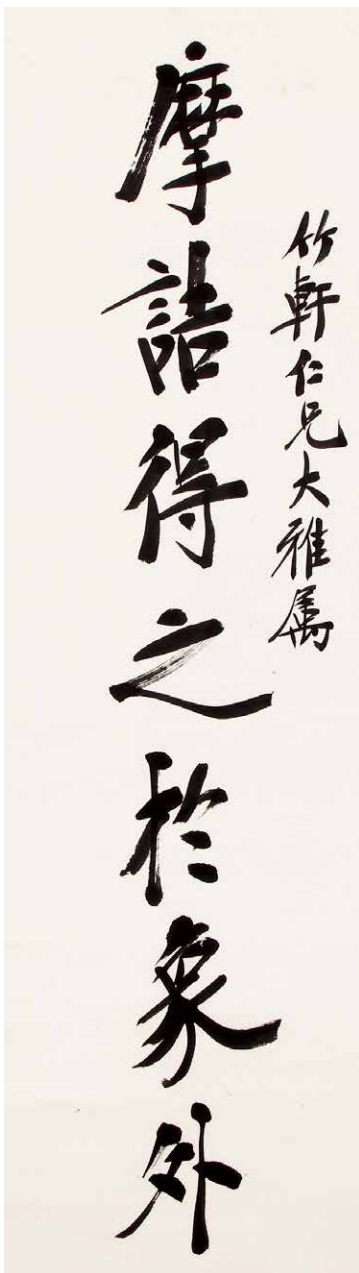 竹軒仁兄大雅属
摩詰得之於象外